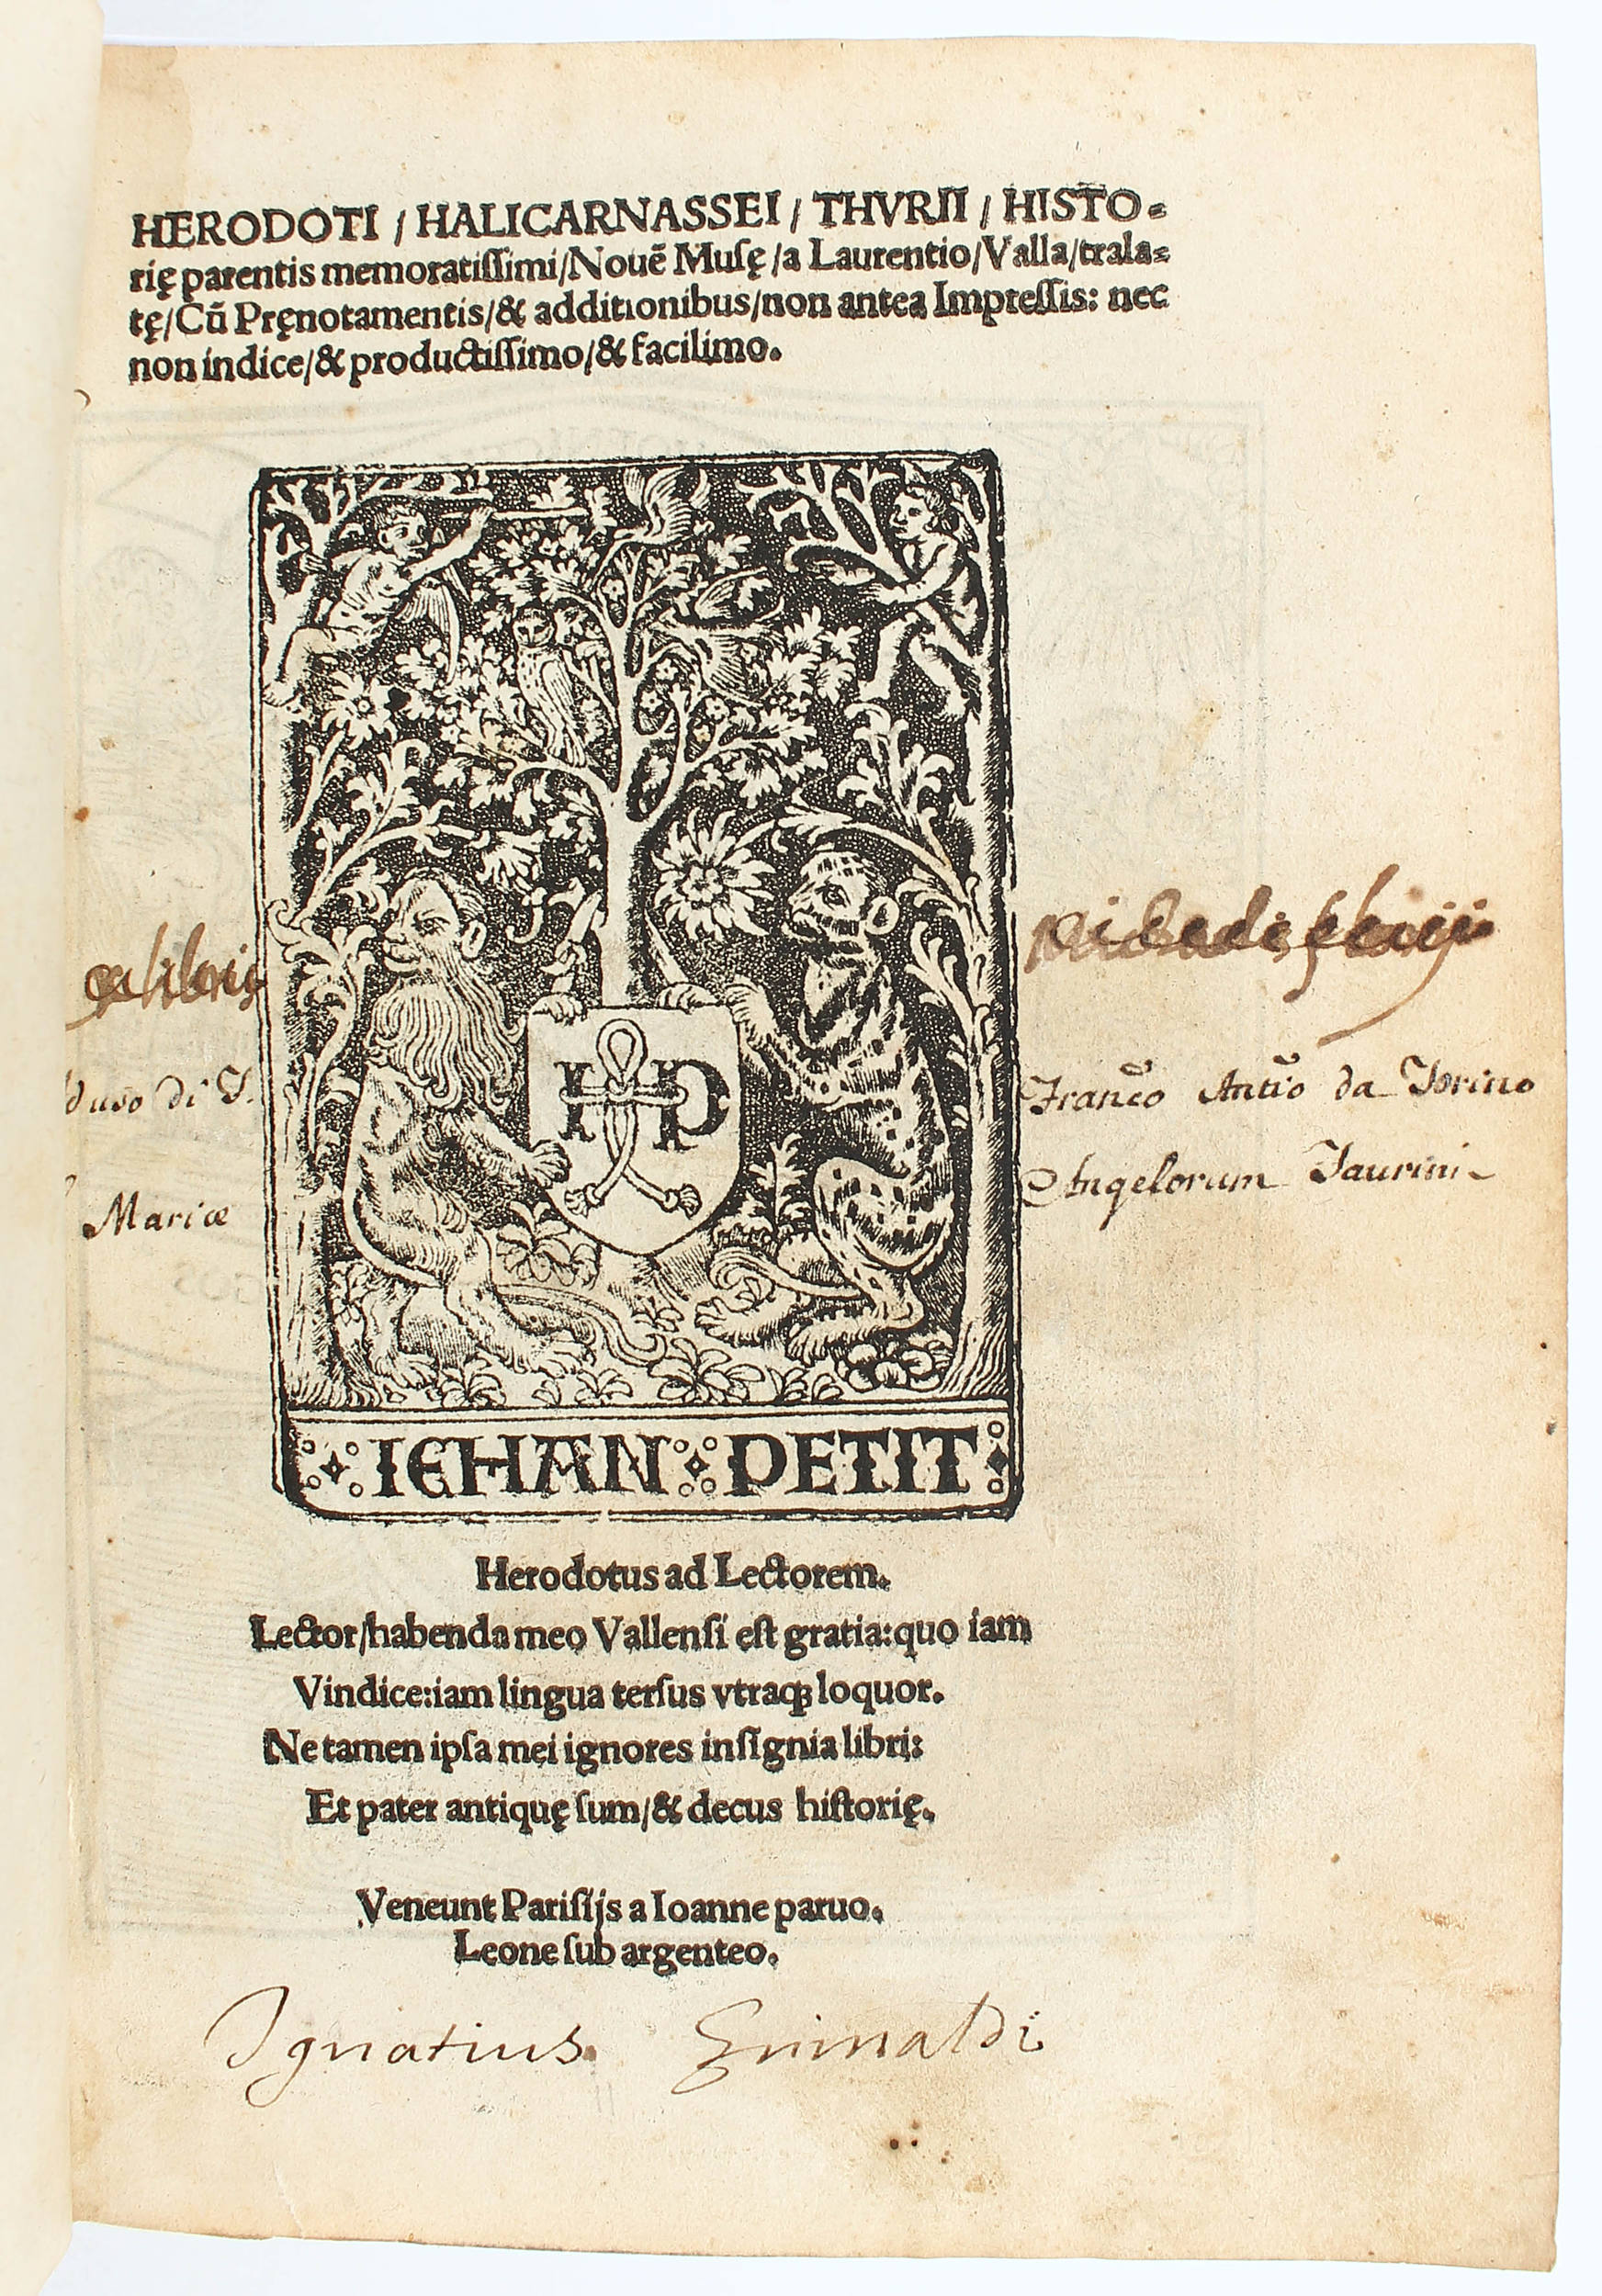 HERODOTI / HALICARNASSEI / THVRII / HISTO⸗
rię parentis memoratiſſimi/Nouē Muſę /a Laurentio/Valla/trala⸗
tę/Cū Pręnotamentis/& additionibus/non antea Impreſſis: nec
non indice/& productiſſimo/& facilimo.
ex libris
d uso di S. Franc̃o Antũo da Torino
Mariæ Angelorum Taurini
I P
IEHAN PETIT
Herodotus ad Lectorem.
Lector/habenda meo Vallenſi eſt gratia:quo iam
Vindice:iam lingua terſus vtraqꝫ loquor.
Ne tamen ipſa mei ignores inſignia libri:
Et pater antiquę ſum/& decus hiſtorię.
Veneunt Pariſijs a Ioanne paruo.
Leone ſub argenteo.
Ignatius Grimaldi